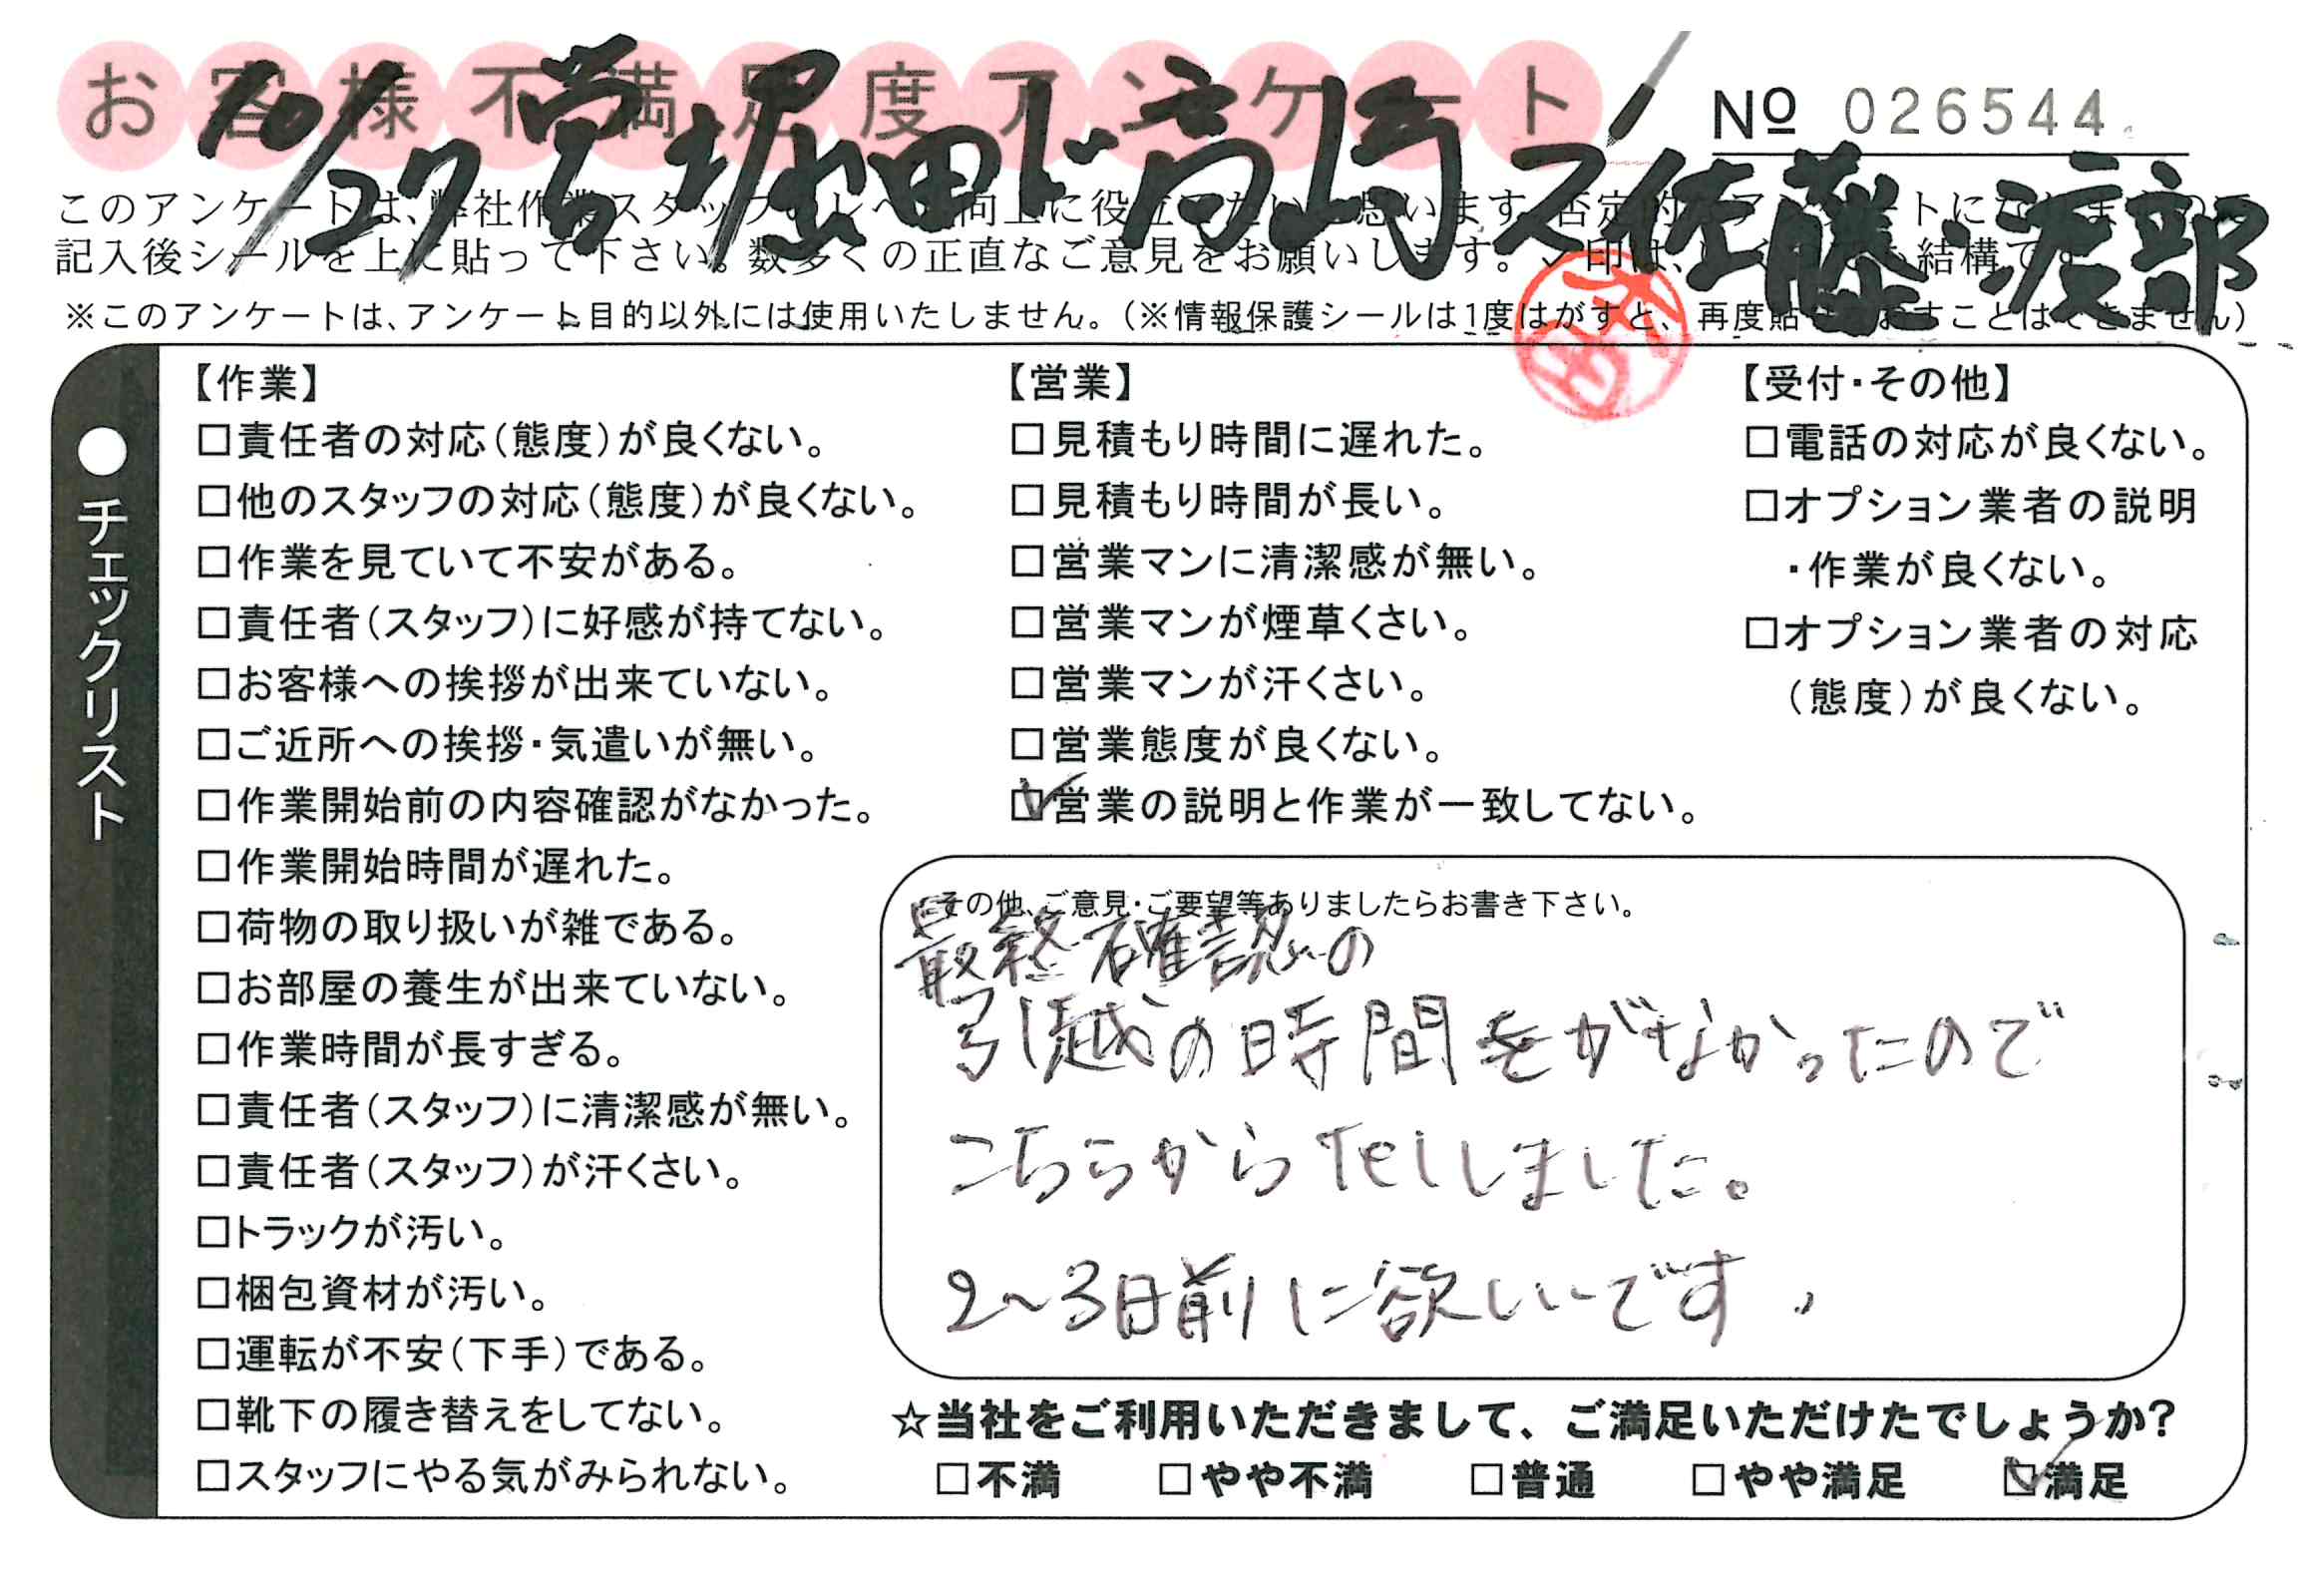 お客様不満足度アンケート
№ 026544
10/27 営堀田ド高崎ス佐藤・渡部
このアンケートは、弊社作業スタッフのレベル向上に役立てたいと思います。否定的なアンケートになりますので
記入後シールを上に貼って下さい。数多くの正直なご意見をお願いします。✓印は、いくつでも結構です。
※このアンケートは、アンケート目的以外には使用いたしません。（※情報保護シールは1度はがすと、再度貼りなおすことはできません）
●チェックリスト
【作業】
□責任者の対応（態度）が良くない。
□他のスタッフの対応（態度）が良くない。
□作業を見ていて不安がある。
□責任者（スタッフ）に好感が持てない。
□お客様への挨拶が出来ていない。
□ご近所への挨拶・気遣いが無い。
□作業開始前の内容確認がなかった。
□作業開始時間が遅れた。
□荷物の取り扱いが雑である。
□お部屋の養生が出来ていない。
□作業時間が長すぎる。
□責任者（スタッフ）に清潔感が無い。
□責任者（スタッフ）が汗くさい。
□トラックが汚い。
□梱包資材が汚い。
□運転が不安（下手）である。
□靴下の履き替えをしてない。
□スタッフにやる気がみられない。
【営業】
□見積もり時間に遅れた。
□見積もり時間が長い。
□営業マンに清潔感が無い。
□営業マンが煙草くさい。
□営業マンが汗くさい。
□営業態度が良くない。
☑営業の説明と作業が一致してない。
【受付・その他】
□電話の対応が良くない。
□オプション業者の説明
・作業が良くない。
□オプション業者の対応
（態度）が良くない。
その他、ご意見・ご要望等ありましたらお書き下さい。
最終確認の
引越の時間がなかったので
こちらからTelしました。
2～3日前に欲しいです。
☆当社をご利用いただきまして、ご満足いただけたでしょうか？
□不満 □やや不満 □普通 □やや満足 ☑満足